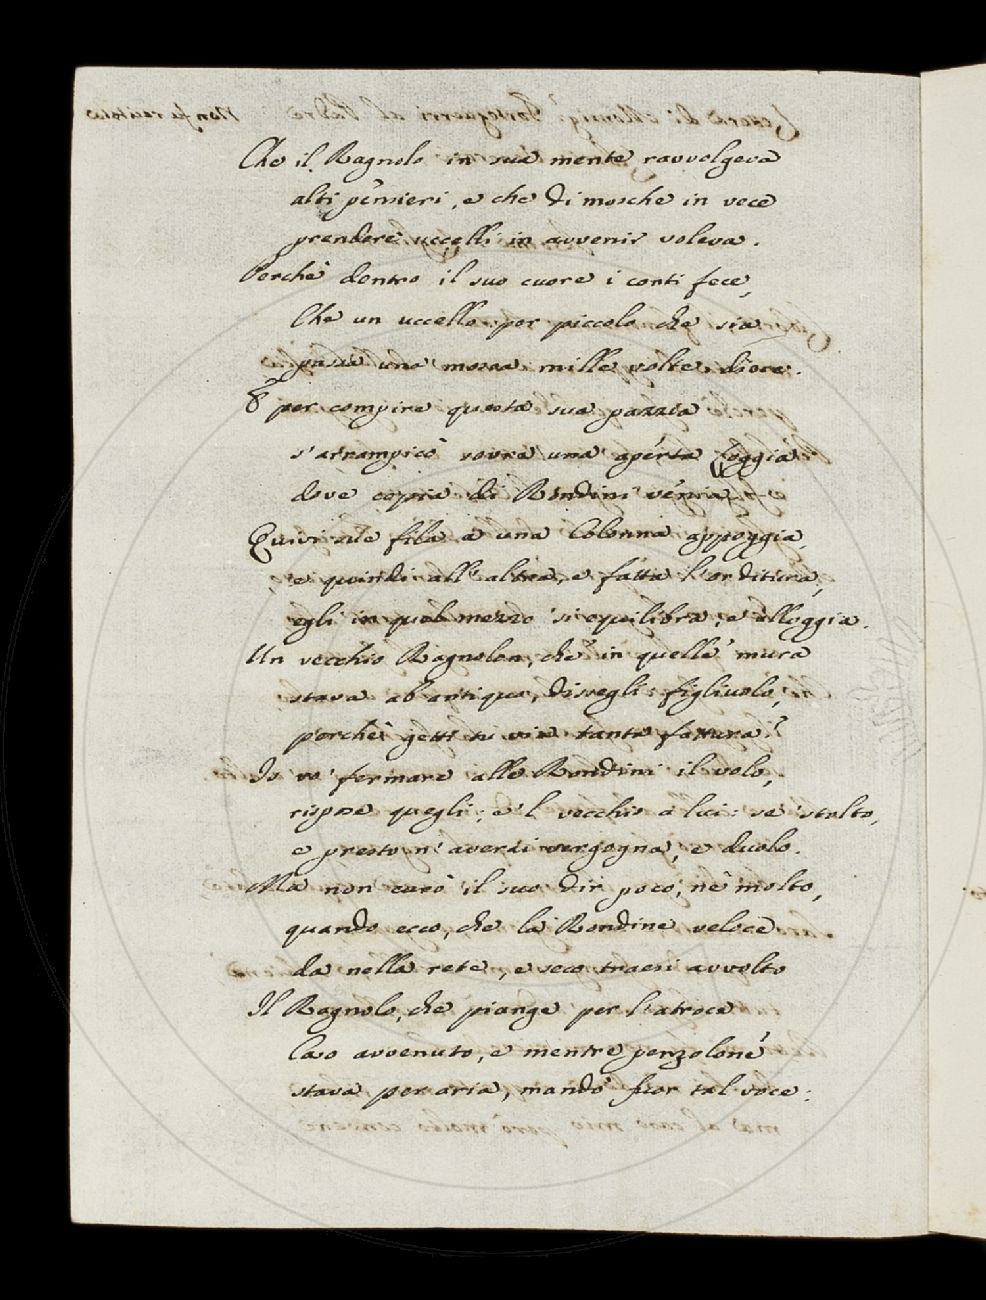 Che il Ragnolo in sua mente ravvolgeva
alti pensieri, e che di mosche in vece
prendere uccelli in avvenir voleva.
Perchè dentro il suo cuore i conti fece,
Che un uccello per piccolo che sia
passa una mosca mille volte, diece.
E per compire questa sua pazzia
s'arrampicò sovra una aperta loggia
dove copia di Rondini venia.
Quivi sue fila a una Colonna appoggia,
e quindi all'altra, e fatta l'orditura,
egli in quel mezzo si equilibra, e alloggia.
Un vecchio Ragnolon, che in quelle mura
stava ab antiquo, dissegli: figliuolo,
perchè getti tu via tanta fattura?
Io vo' fermare alle Rondini il volo,
rispose quegli; e 'l vecchio a lui: se' stolto,
e presto n'averai vergogna, e duolo.
Ma non curò il suo dir poco, nè molto,
quando ecco, che la Rondine veloce
da nella rete, e seco traesi avvolto
Il Ragnolo, che piange per l'atroce
Caso avvenuto, e mentre penzolone
stava per aria, mandò fuor tal voce: